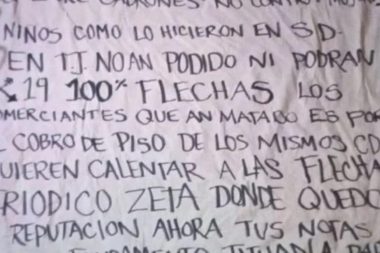 NINOS COMO LO HICIERON EN S D.
EN TJ NOAN PODIDO NI PODRAN
19 100% FLECHAS LOS
OMERCIANTES QUE AN MATADO ES POR
L COBRO DE PISO DE LOS MISMOS CD
UIEREN CALENTAR A LAS FLECHA
RIODICO ZETA DONDE QUEDO
REPUTACION AHORA TUS NOTAS